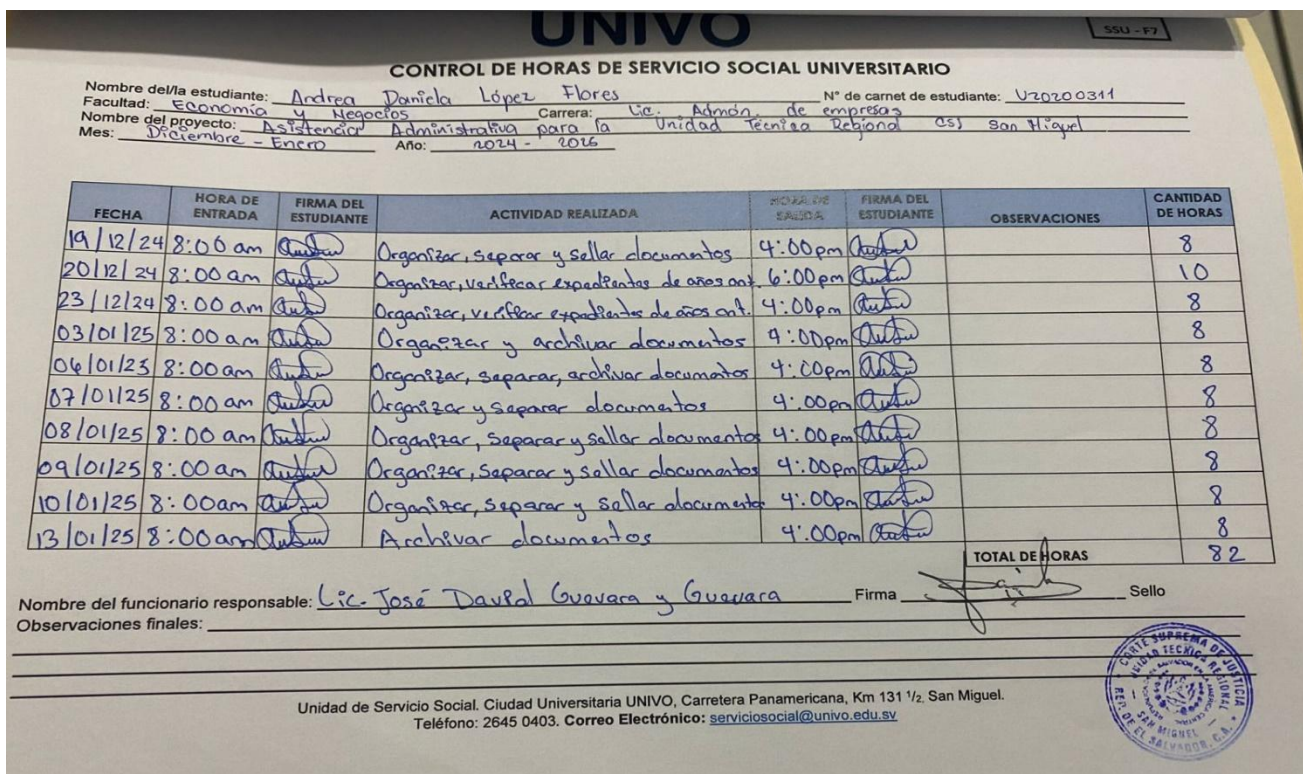 UNIVO
SSU - F7
CONTROL DE HORAS DE SERVICIO SOCIAL UNIVERSITARIO
Nombre del/la estudiante: Andrea Daniela López Flores N° de carnet de estudiante: U20200311
Facultad: Economía y Negocios Carrera: Lic. Admón. de empresas
Nombre del proyecto: Asistencia Administrativa para la Unidad Técnica Regional CSJ San Miguel
Mes: Diciembre - Enero Año: 2024 - 2025
FECHA HORA DE ENTRADA FIRMA DEL ESTUDIANTE ACTIVIDAD REALIZADA HORA DE SALIDA FIRMA DEL ESTUDIANTE OBSERVACIONES CANTIDAD DE HORAS
19/12/24 8:00 am Organizar, separar y sellar documentos 4:00pm 8
20/12/24 8:00 am Organizar, verificar expedientes de años ant. 6:00pm 10
23/12/24 8:00 am Organizar, verificar expedientes de años ant. 4:00pm 8
03/01/25 8:00 am Organizar y archivar documentos 4:00pm 8
06/01/25 8:00 am Organizar, separar, archivar documentos 4:00pm 8
07/01/25 8:00 am Organizar y separar documentos 4:00pm 8
08/01/25 8:00 am Organizar, separar y sellar documentos 4:00pm 8
09/01/25 8:00 am Organizar, separar y sellar documentos 4:00pm 8
10/01/25 8:00am Organizar, separar y sellar documentos 4:00pm 8
13/01/25 8:00am Archivar documentos 4:00pm 8
TOTAL DE HORAS 82
Nombre del funcionario responsable: Lic. José David Guevara y Guevara Firma Sello
Observaciones finales:
Unidad de Servicio Social. Ciudad Universitaria UNIVO, Carretera Panamericana, Km 131 1/2, San Miguel.
Teléfono: 2645 0403. Correo Electrónico: serviciosocial@univo.edu.sv
CORTE SUPREMA DE JUSTICIA
UNIDAD TECNICA REGIONAL
SAN MIGUEL
REP. DE EL SALVADOR, C.A.